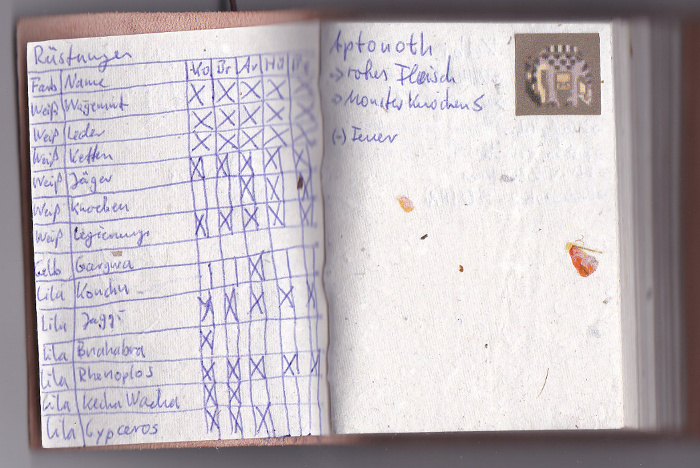 Rüstungen
Farb Name Ko Br Ar Hü
Weiß Wagemut
Weiß Leder
Weiß Ketten
Weiß Jäger
Weiß Knochen
Weiß Legierungs
Gelb Gargwa
Lila Konchu
Lila Jaggi
Lila Bnahabra
Lila Rhenoplos
Lila Kecha Wacha
Lila Gypceros
Aptonoth
-> rohes Fleisch
-> Monster Knochen S
(-) Feuer